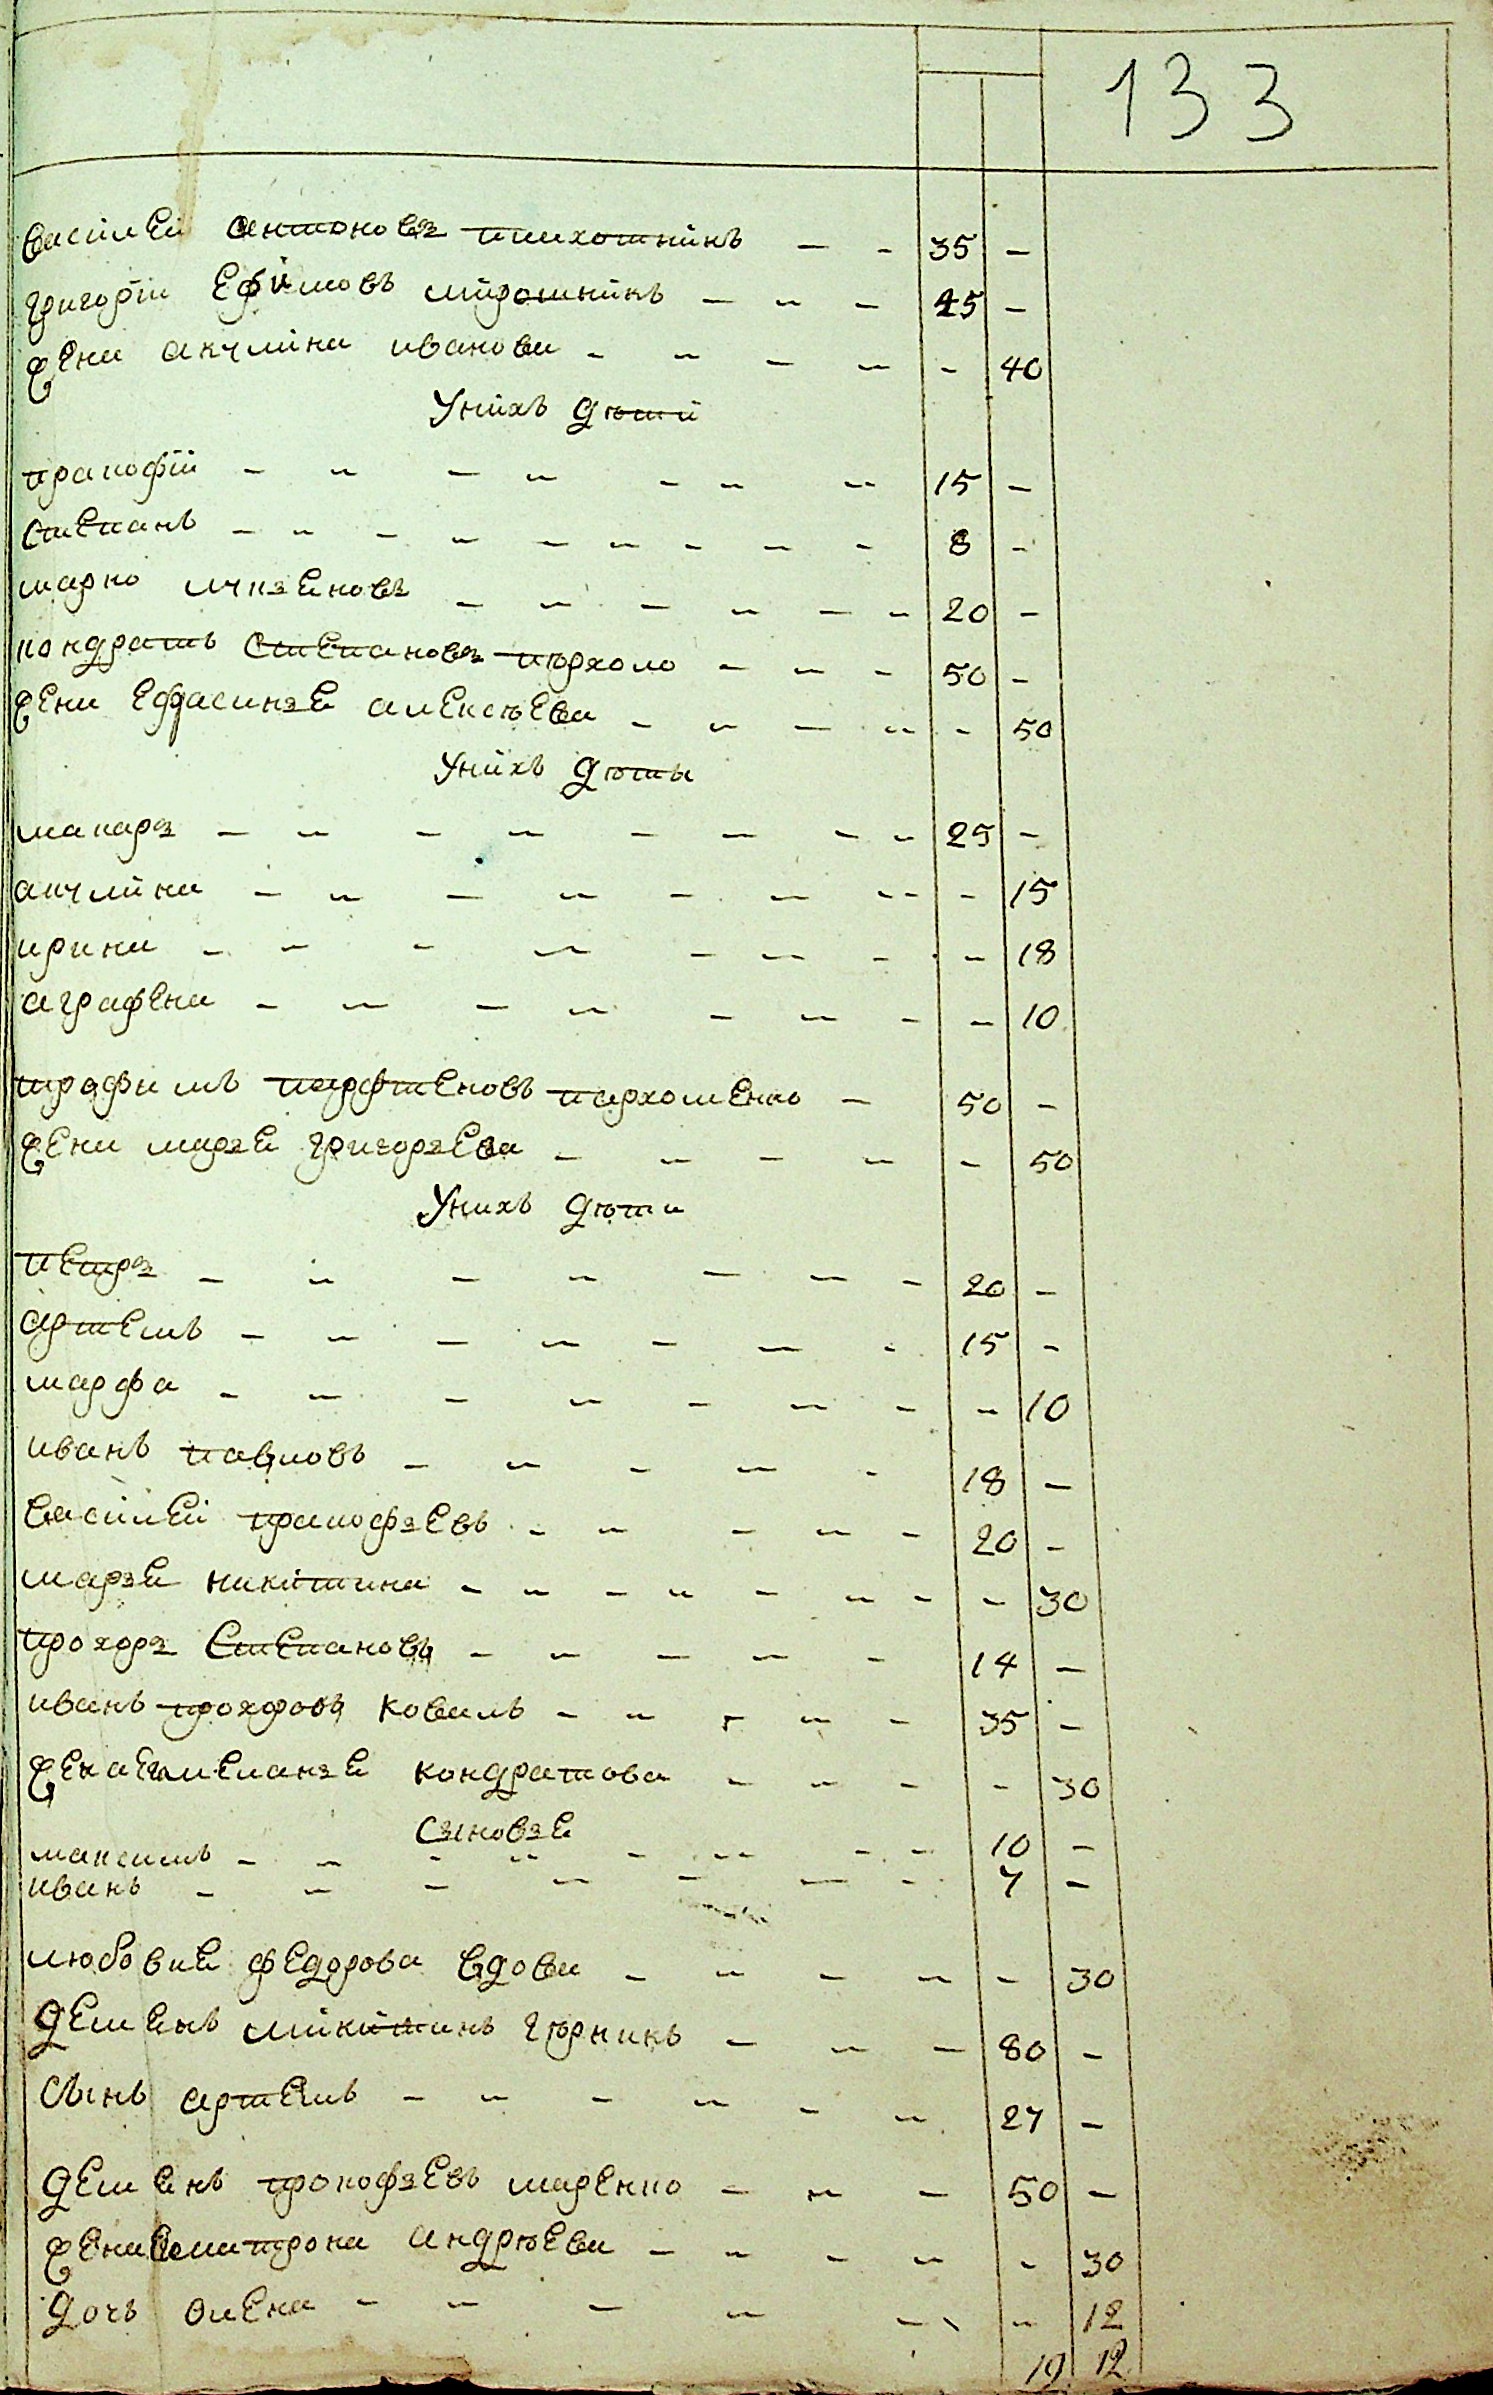 133
василей антоновъ пшихотникъ — - 35 —
григорїи ефимовъ мирошникъ — - — 45 —
жена акулина иванова - - — - - 40
У нихъ дѣти
пракофїй — - — - - - - 15 —
степанъ — - — - — - - — - 8 -
марко лукъяновъ — - — - — - 20 —
кондратъ степановъ пархомо — - - 50 —
жена ефрасинья алексѣева — - — - - 50
У нихъ дѣты
макаръ — - — - — — - - 25 —
акулина — - — - — - - - - 15
ирина — - - — - - - - 18
аграфена — - — - - - - - 10
трофимъ парфтеновъ пархоменко — 50 —
жена марья григорьева — - — - - 50
У нихъ дѣти
петръ — - — - — — - 20 —
артемъ — - — - — - - 15 -
марфа — - — - — - - - 10
иванъ павловъ — - — - - 18 —
василей пракофьевъ - - — - - 20 -
марья никитина - - — - — - - - 30
прохоръ степановъ — - — - - 14 —
иванъ прохоровъ коваль - - - - - 35 —
жена емиланья кондратова — - - - 30
сыновья
максимъ — - - - — - - - 10 —
иванъ — - — - — — - 7 —
любовия федорова вдова — - — - - 30
деменъ микитинъ гѣрникъ — - — 80 —
сынъ артемъ — - — - - - 27 —
деменъ прокофьевъ маренко — - — 50 —
жена матрона андрѣева — - - - - 30
дочь олена - - — - - - - 12
19 12